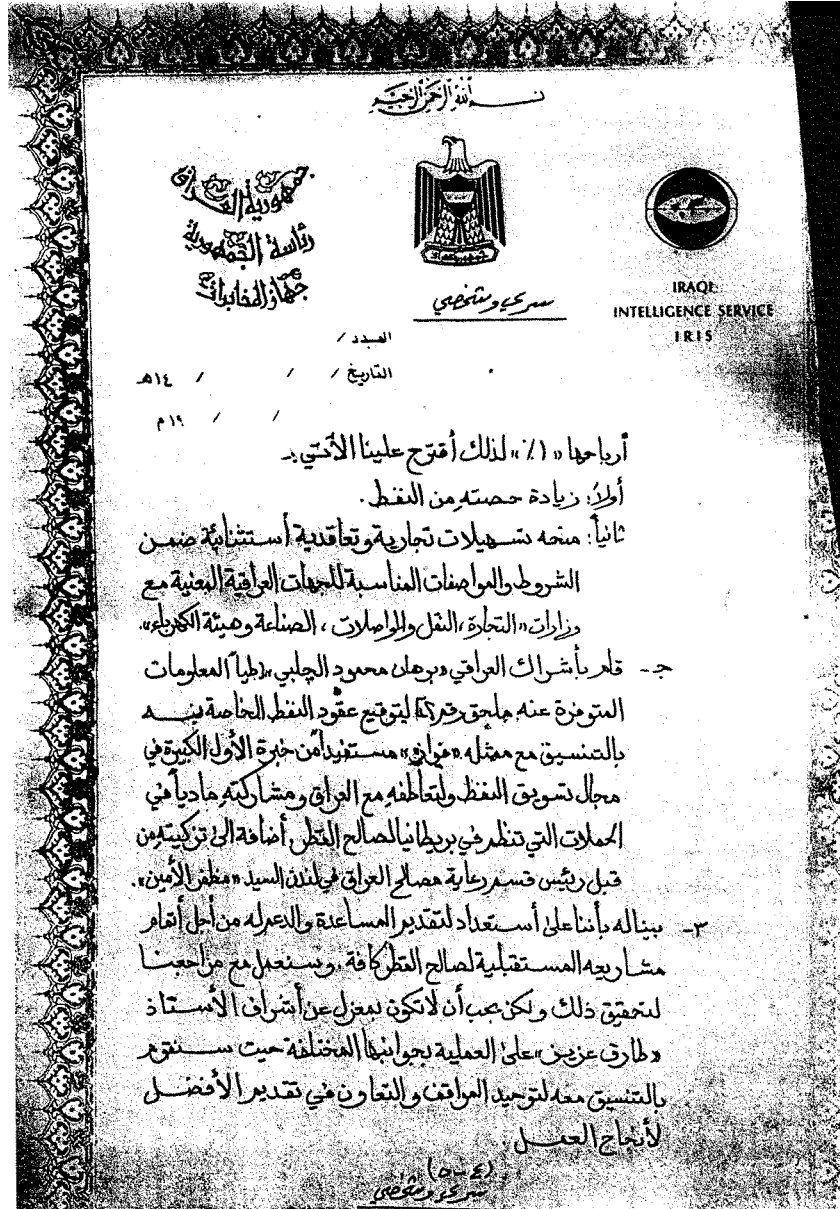 بسم الله الرحمن الرحيم
جمهورية العراق
رئاسة الجمهورية
جهاز المخابرات
IRAQI
INTELLIGENCE SERVICE
IRIS
سري وشخصي
العدد /
التاريخ / / / ١٤هـ
/ / ١٩م
أرباحها «١٪» لذلك أقترح علينا الأتي :ـ
أولاً: زيادة حصته من النفط .
ثانياً: منحه تسهيلات تجارية وتعاقدية أستثنائية ضمن
الشروط والمواصفات المناسبة للجهات العراقية المعنية مع
وزارات «التجارة ، النقل والمواصلات ، الصناعة وهيئة الكهرباء».
جـ - قام بأشراك العراقي «برهان محمود الچلبي» (طياً المعلومات
المتوفرة عنه ملحق رقم لتوقيع عقود النفط الخاصة به
بالتنسيق مع ممثله «فواز» مستفيداً من خبرة الأول الكبيرة في
مجال تسويق النفط ولتعاطفه مع العراق ومشاركته مادياً في
الحملات التي تنظم في بريطانيا لصالح القطر أضافة الى تزكيته من
قبل رئيس قسم رعاية مصالح العراق في لندن السيد «مظفر الأمين».
٣- بينا له بأننا على أستعداد لتقديم المساعدة والدعم له من أجل أتمام
مشاريعه المستقبلية لصالح القطر كافة ، وسنعمل مع مراجعنا
لتحقيق ذلك ولكن يجب أن لاتكون بمعزل عن أشراف الأستاذ
«طارق عزيز» على العملية بجوانبها المختلفة حيث سنقوم
بالتنسيق معه لتوحيد المواقف والتعاون في تقديم الأفضل
لأنجاح العمل
(٤-٥)
سري وشخصي